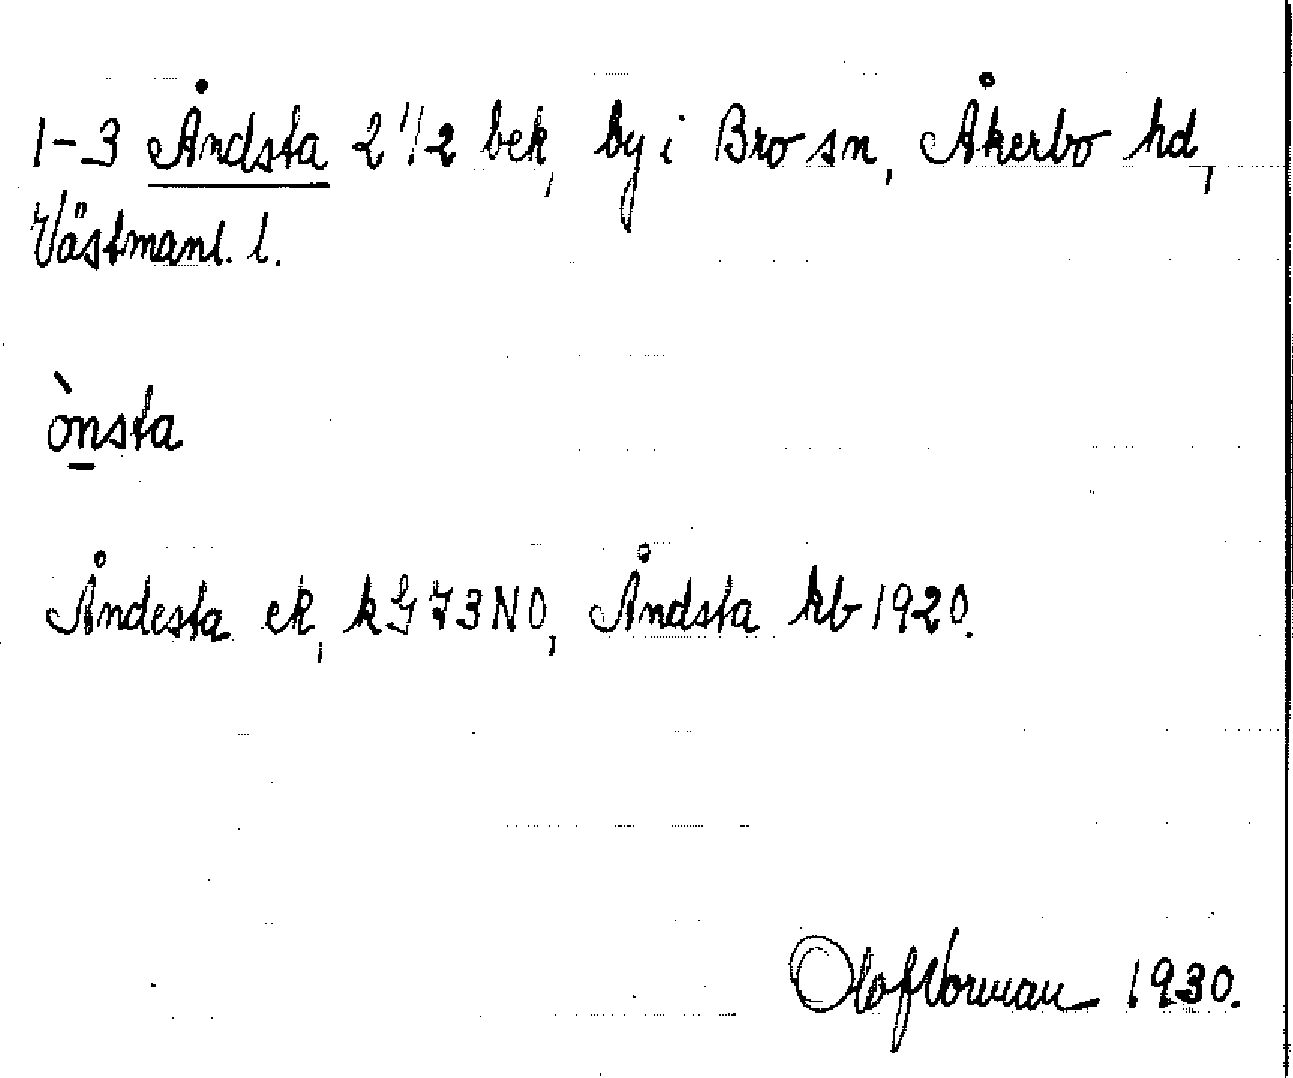 1-3 Åndsta 2 1/2 bek, by i Bro sn, Åkerbo hd,
Västmanl. l.
ònsta
Åndesta ek, kG73NO, Åndsta kb 1920.
Olof Norman 1930.